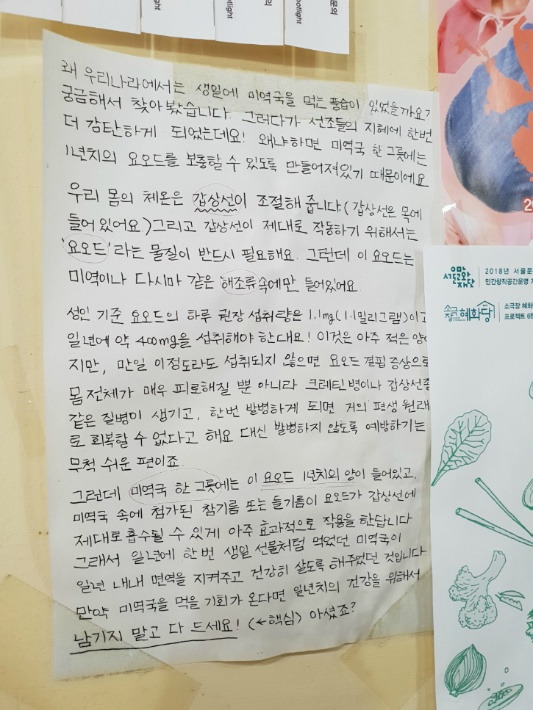 왜 우리나라에서는 생일에 미역국을 먹는 풍습이 있었을까요?
궁금해서 찾아봤습니다. 그러다가 선조들의 지혜에 한번
더 감탄하게 되었는데요! 왜냐하면 미역국 한 그릇에는
1년치의 요오드를 보충할 수 있도록 만들어져있기 때문이에요
우리 몸의 체온은 갑상선이 조절해 줍니다 (갑상선은 목에
들어있어요) 그리고 갑상선이 제대로 작동하기 위해서는
'요오드' 라는 물질이 반드시 필요해요. 그런데 이 요오드는
미역이나 다시마 같은 해조류속에만 들어있어요.
성인 기준 요오드의 하루 권장 섭취량은 1.1mg (1.1밀리그램)이고
일년에 약 400mg을 섭취해야 한대요! 이것은 아주 적은 양이
지만, 만일 이정도라도 섭취되지 않으면 요오드 결핍 증상으로
몸 전체가 매우 피로해질 뿐 아니라 크레틴병이나 갑상선종
같은 질병이 생기고, 한번 발병하게 되면 거의 평생 원래
로 회복할 수 없다고 해요 대신 발병하지 않도록 예방하기는
무척 쉬운 편이죠
그런데 미역국 한 그릇에는 이 요오드 1년치의 양이 들어있고,
미역국 속에 첨가된 참기름 또는 들기름이 요오드가 갑상선에
제대로 흡수될 수 있게 아주 효과적으로 작용을 한답니다
그래서 일년에 한번 생일 선물처럼 먹었던 미역국이
일년 내내 면역을 지켜주고 건강히 살도록 해주었던 것입니다
만약 미역국을 먹을 기회가 온다면 일년치의 건강을 위해서
남기지 말고 다 드세요! (←핵심) 아셨죠?
서울문화재단
2018년 서울문
민간창작공간운영 지
소극장 혜화당
소극장 혜화
프로젝트 6
20